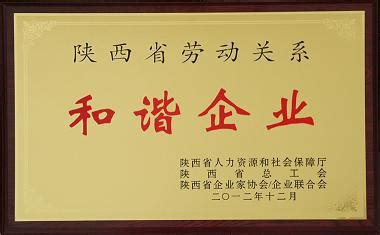 陕西省劳动关系
和谐企业
陕西省人力资源和社会保障厅
陕西省总工会
陕西省企业家协会/企业联合会
二〇一二年十二月